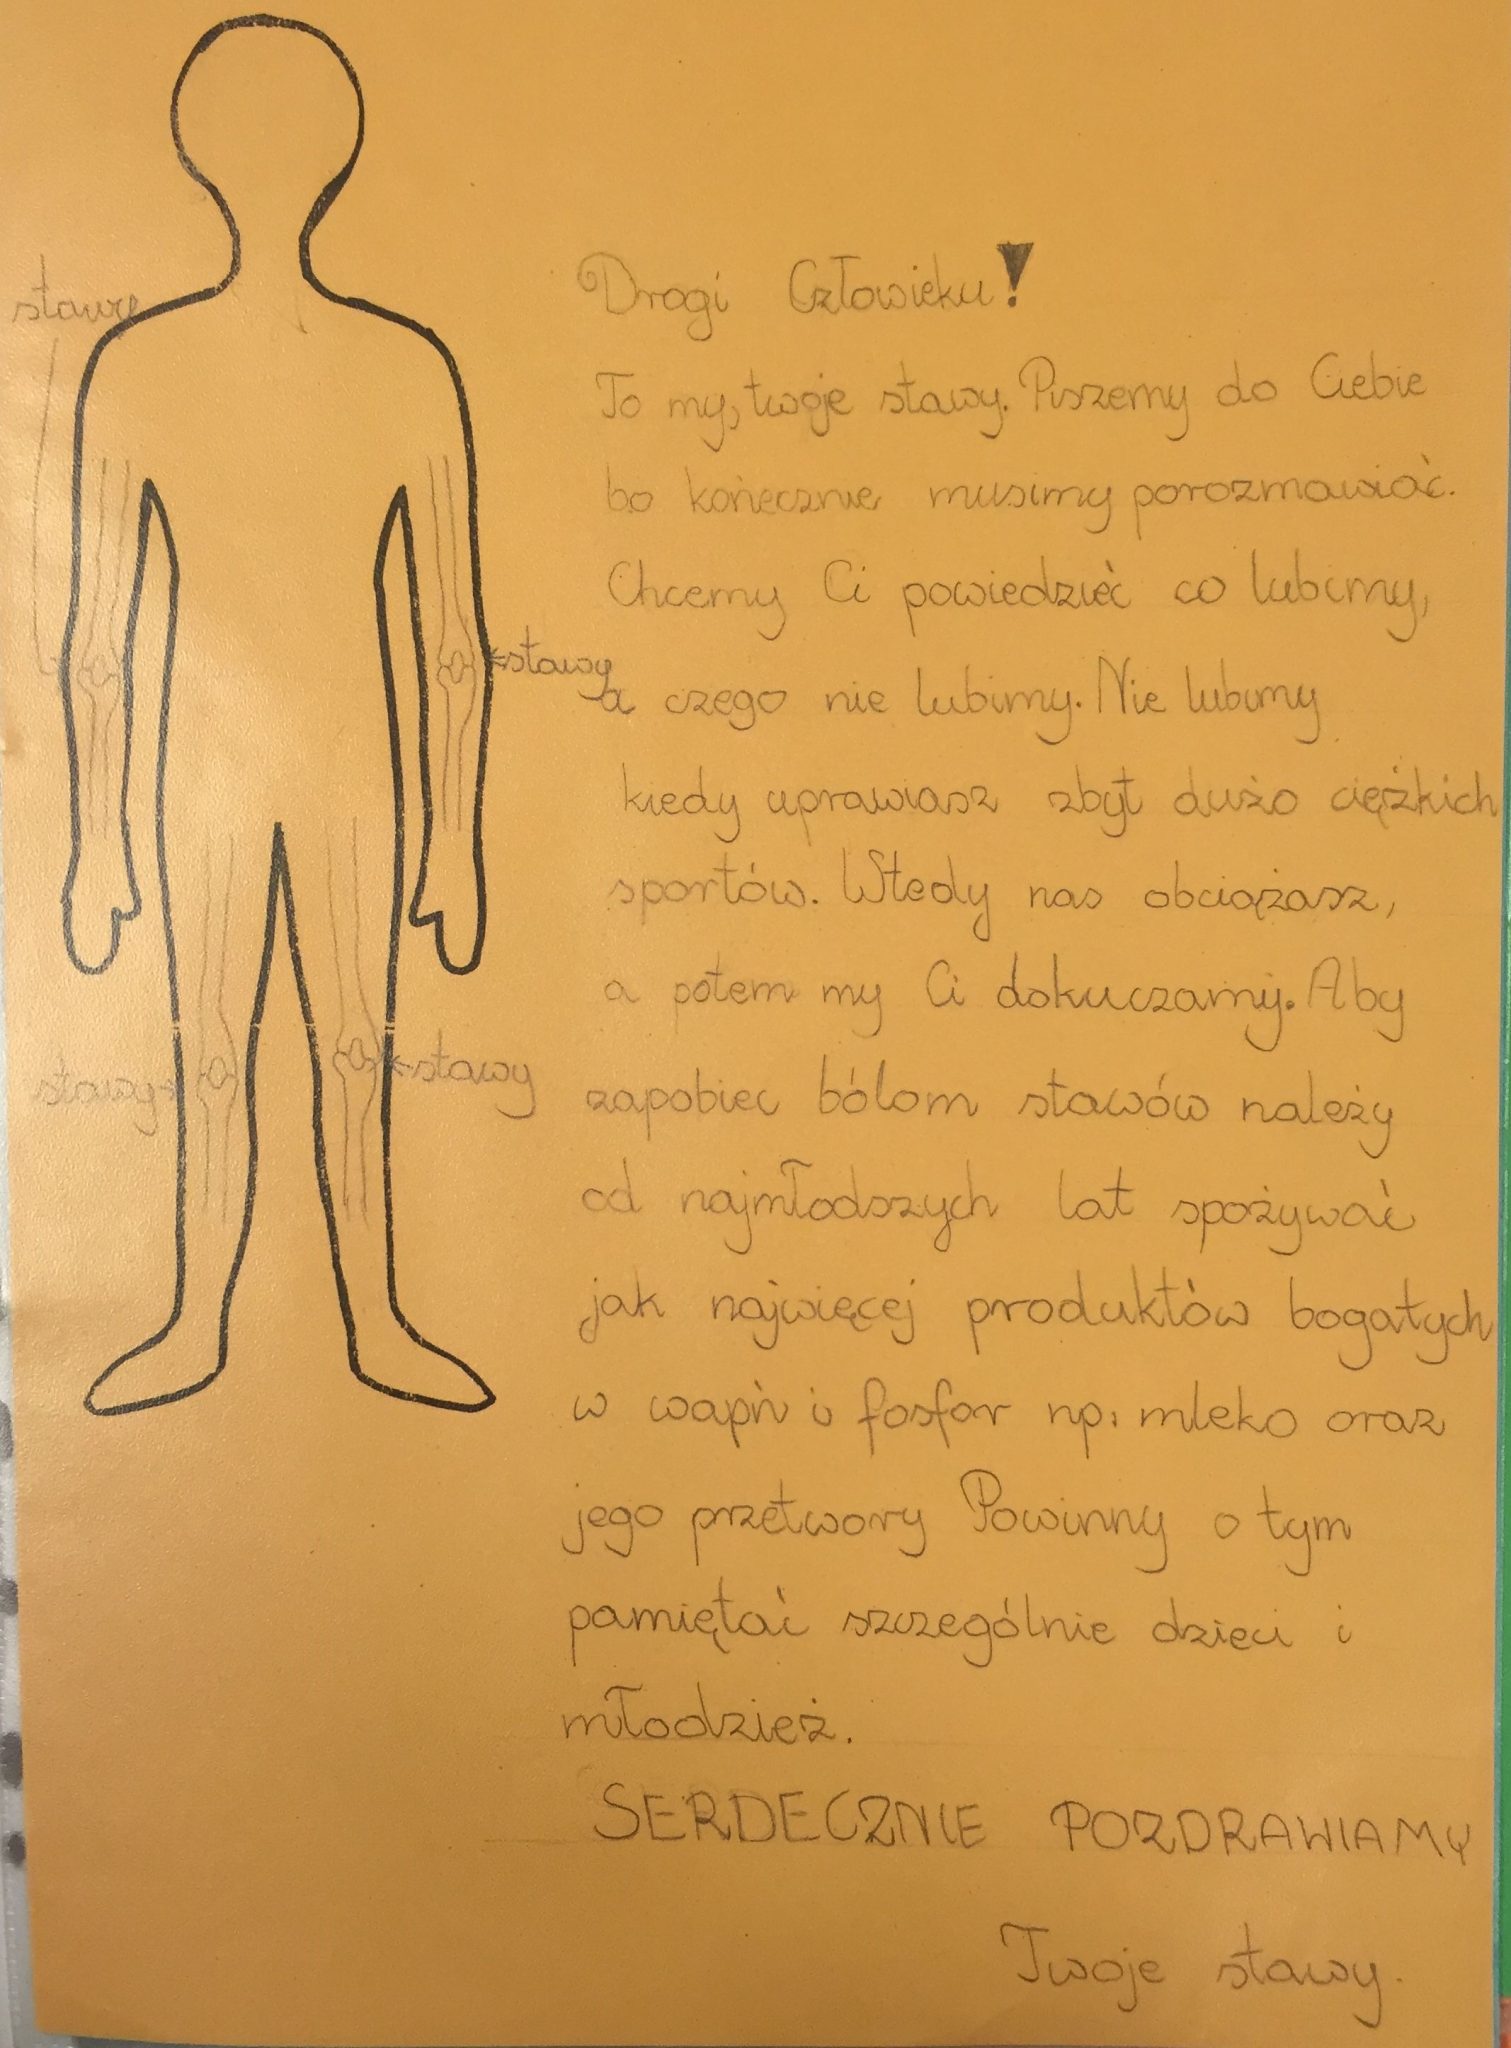 stawy
Drogi Człowieku!
To my, twoje stawy. Piszemy do Ciebie
bo koniecznie musimy porozmawiać.
Chcemy Ci powiedzieć co lubimy,
stawy
a czego nie lubimy. Nie lubimy
kiedy uprawiasz zbyt dużo ciężkich
sportów. Wtedy nas obciążasz,
a potem my Ci dokuczamy. Aby
stawy
stawy
zapobiec bólom stawów należy
od najmłodszych lat spożywać
jak najwięcej produktów bogatych
w wapń i fosfor np. mleko oraz
jego przetwory Powinny o tym
pamiętać szczególnie dzieci i
młodzież.
SERDECZNIE POZDRAWIAMY
Twoje stawy.